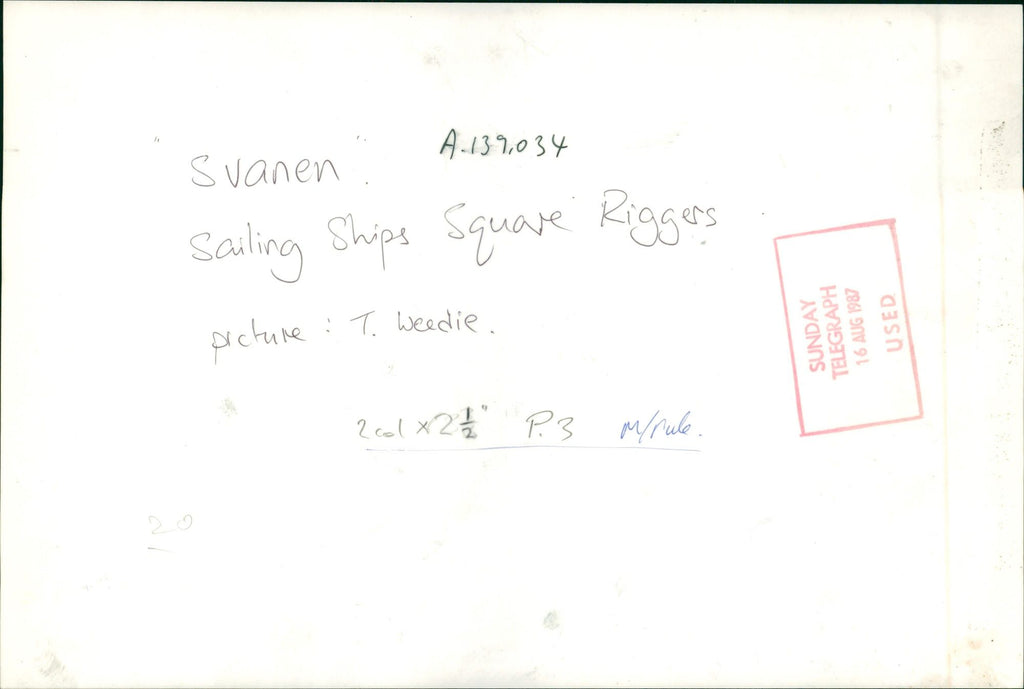 "Svanen". A.139,034
Sailing Ships Square Riggers.
picture : T. Weedie.
SUNDAY
TELEGRAPH
16 AUG 1987
USED
2 col x 2 1/2" P.3 M/rule.
20